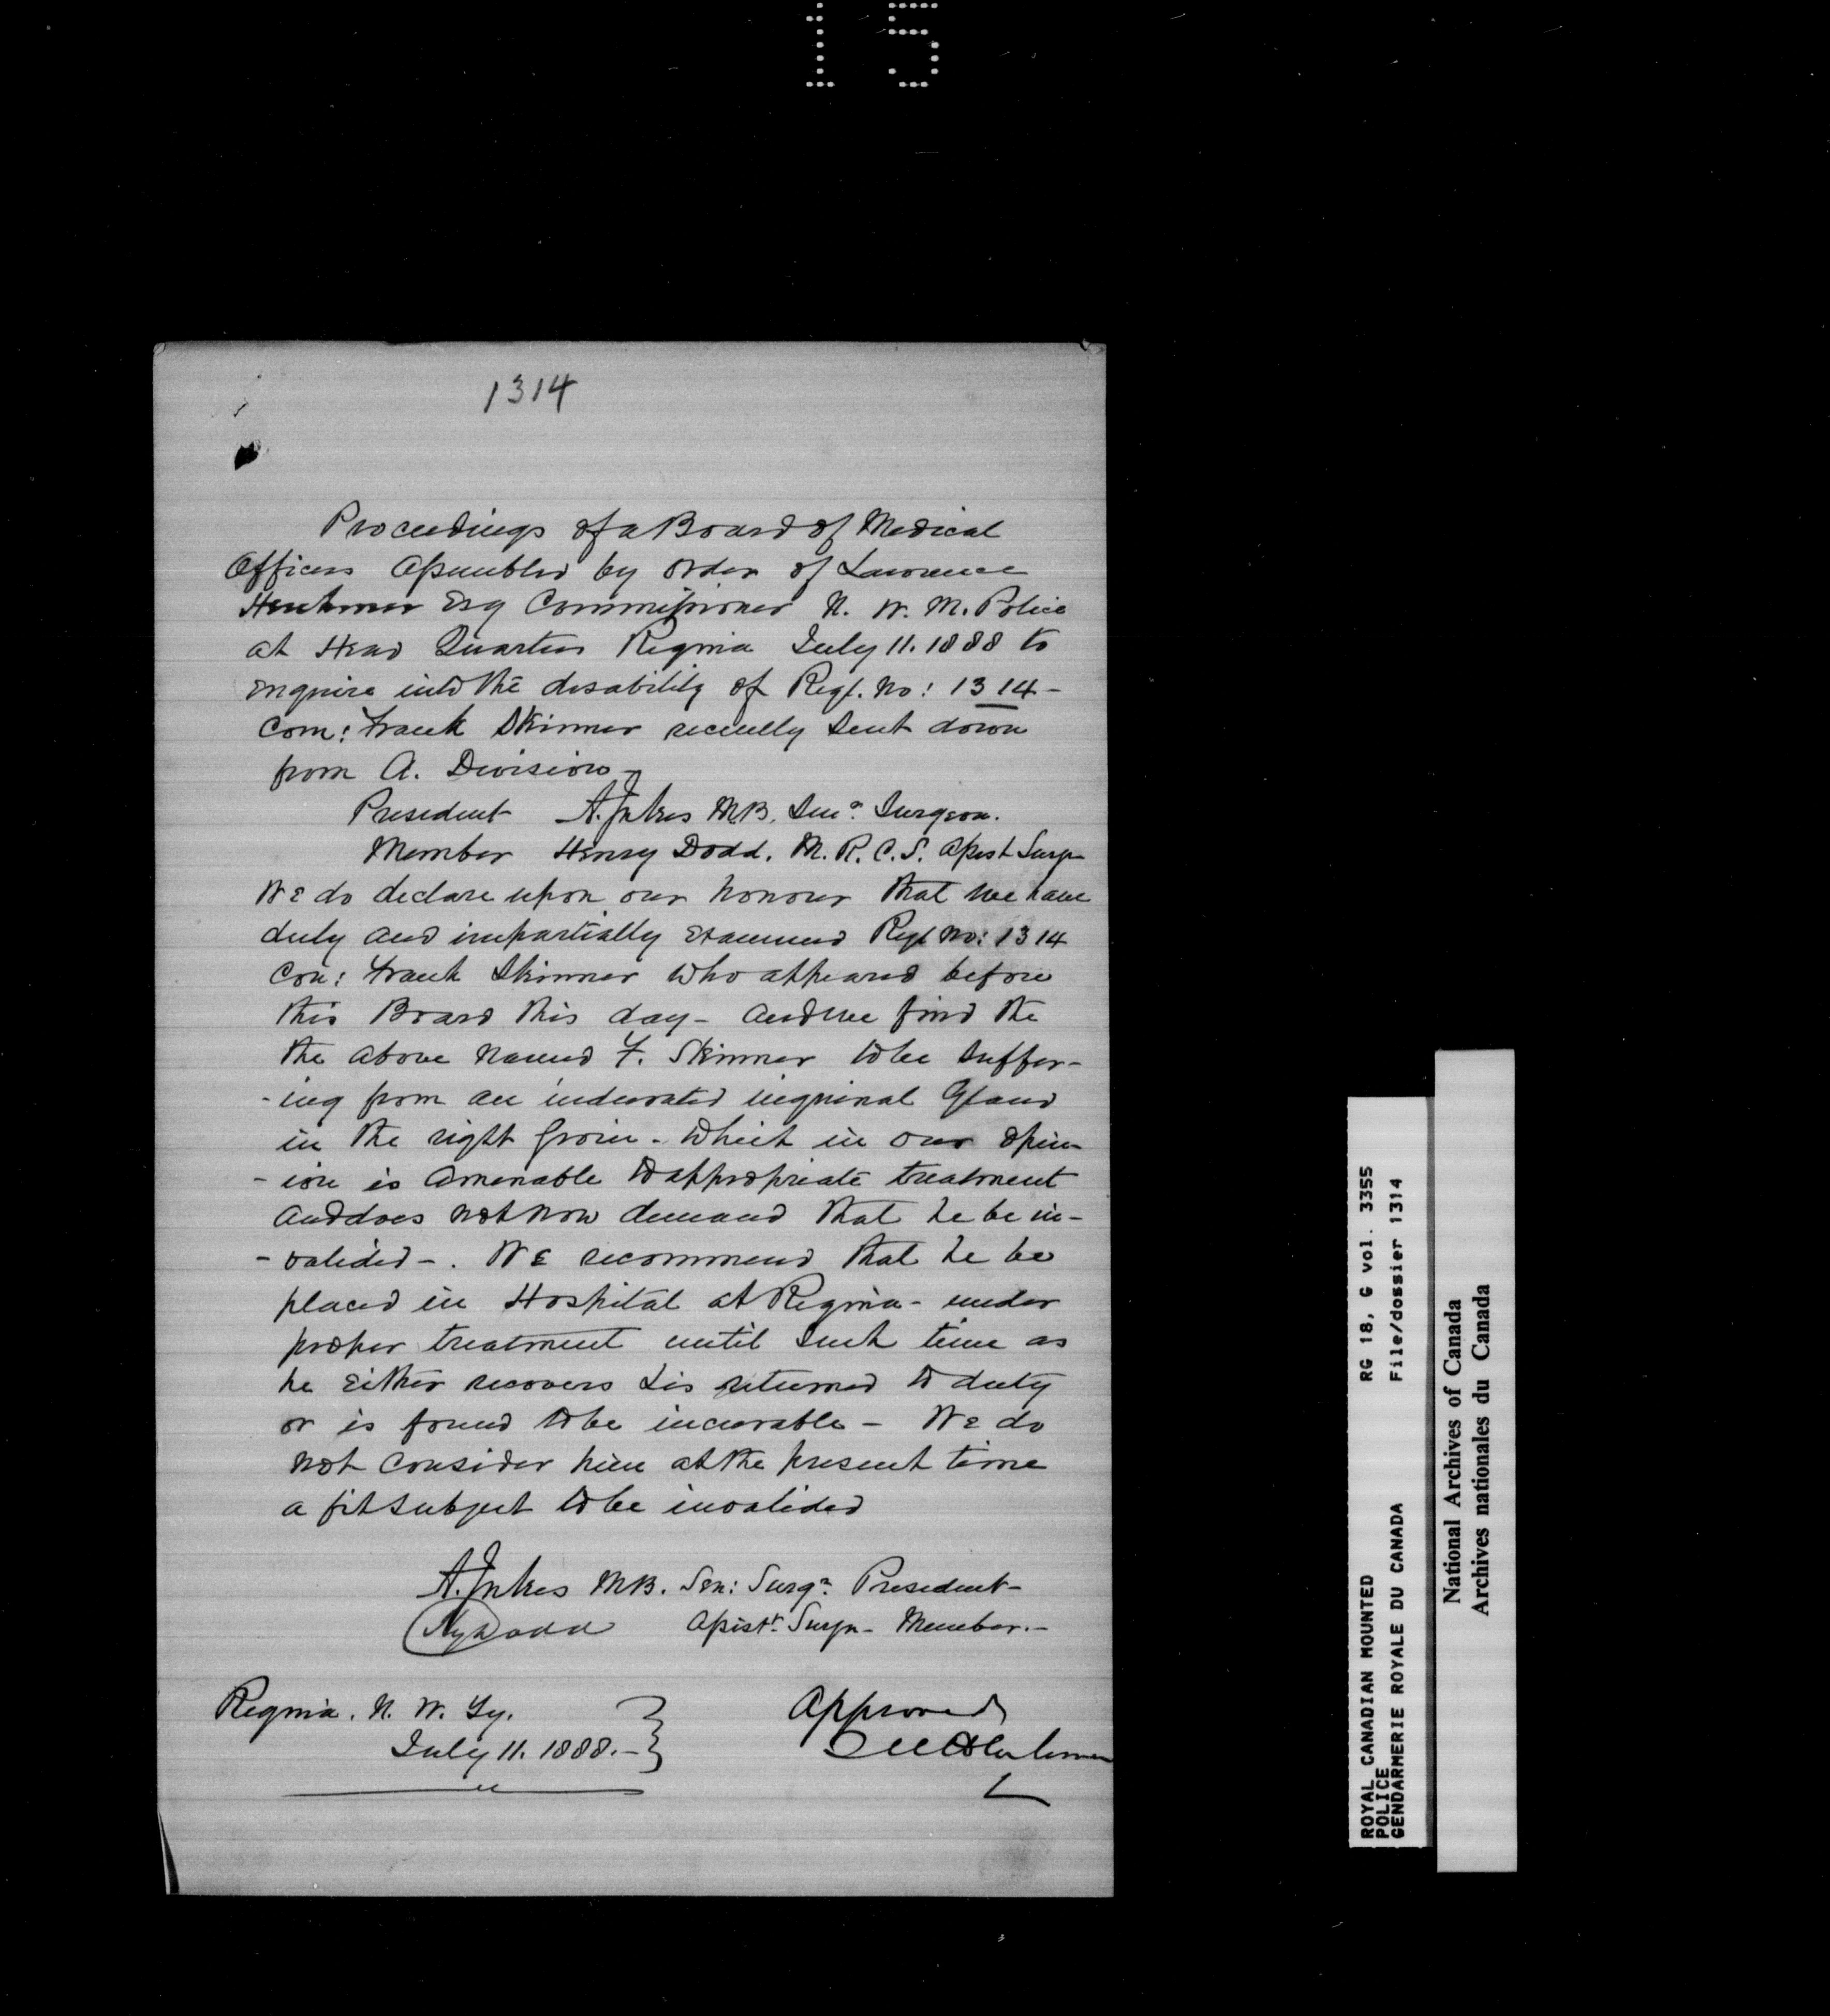 15
1314
Proceedings of a Board of Medical
Officers Assembled by order of Lawrence
Herchmer Esq Commissioner N. W. M. Police
at Head Quarters Regina July 11. 1888 to
enquire into the disability of Regt. No: 1314 -
Con: Frank Skinner recently sent down
from A. Division -
President A. Jukes M.B. Senr. Surgeon.
Member Henry Dodd. M. R. C. S. Assist Surgn
We do declare upon our honour that we have
duly and impartially examined Regt No: 1314
Con: Frank Skinner who appeared before
this Board this day - and we find the
the above named F. Skinner to be suffer-
-ing from an indurated inguinal Gland
in the right groin - which in our opin-
-ion is amenable to appropriate treatment
and does not now demand that he be in-
-valided -. We recommend that he be
placed in Hospital at Regina - under
proper treatment until such time as
he either recovers & is returned to duty
or is found to be incurable - We do
not consider him at the present time
a fit subject to be invalided
A. Jukes MB. Sen: Surgn. President -
Hy Dodd Assistt. Surgn - Member. -
Regina. N. W. Ty.
July 11. 1888. -
Approved
L W Herchmer
ROYAL CANADIAN MOUNTED RG 18, G vol. 3355
POLICE File/dossier 1314
GENDARMERIE ROYALE DU CANADA
National Archives of Canada
Archives nationales du Canada